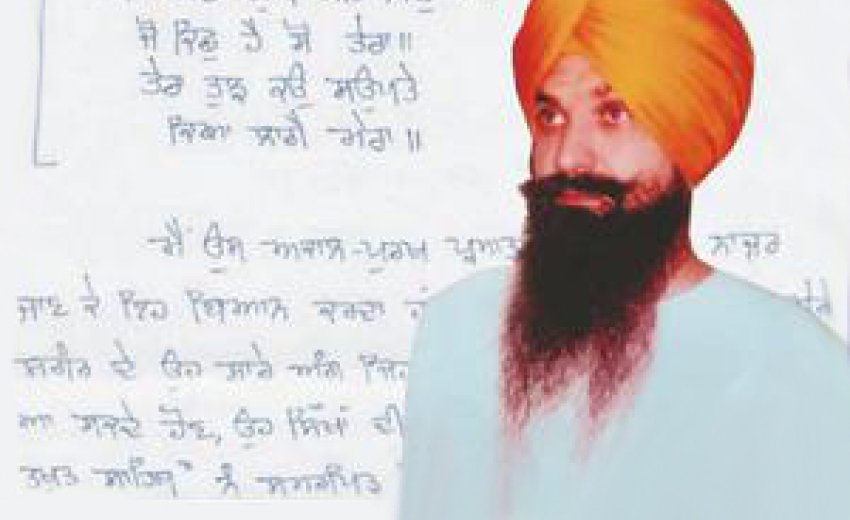 ਜੋ ਕਿਛੁ ਹੈ ਸੋ ਤੇਰਾ॥
ਤੇਰਾ ਤੁਝ ਕਉ ਸਉਪਤੇ
ਕਿਆ ਲਾਗੈ ਮੇਰਾ॥
ਮੈਂ ਉਸ ਅਕਾਲ-ਪੁਰਖ ਪ੍ਰਮਾਤ ਨਾਜ਼ਰ
ਜਾਣ ਕੇ ਇਹ ਬਿਆਨ ਕਰਦਾ ਹਾਂ ਮੇਰੇ
ਸਰੀਰ ਦੇ ਉਹ ਸਾਰੇ ਅੰਗ ਜਿਹ
ਆ ਸਕਦੇ ਹੋਣ, ਉਹ ਸਿੱਖਾਂ ਦੀ
ਤਖ਼ਤ ਸਾਹਿਬ" ਨੂੰ ਸਮਰਪਿਤ